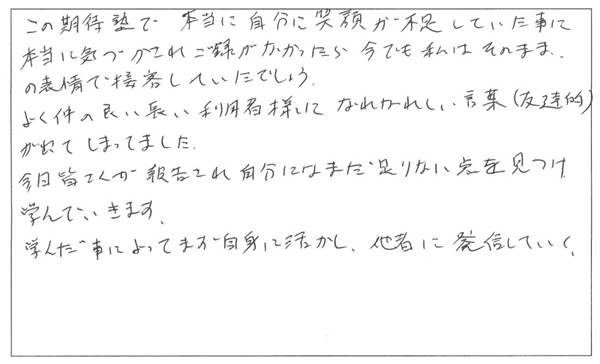 この期待塾で 本当に自分に笑顔が不足していた事に
本当に気づかされご縁がなかったら今でも私はそのまま、
の表情で接客していたでしょう。
よく付の良い長い利用者様にになれなれしい言葉(友達的)
が出てしまってました。
今日皆さんが報告され自分にはまだ足りない点を見つけ
学んでいきます。
学んだ事によってまず自身に活かし、他者に発信していく。